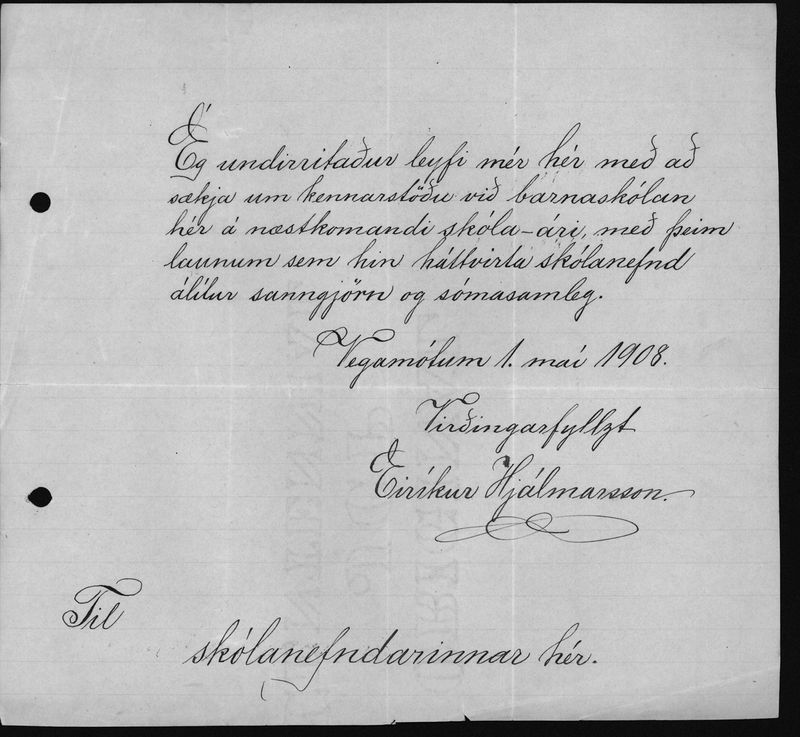 Ég undirritaður leyfi mér hér með að
sækja um kennarstöðu við barnaskólan
hér á næstkomandi skóla-ári, með þeim
launum sem hin háttvirta skólanefnd
álítur sanngjörn og sómasamleg.
Vegamótum 1. maí 1908.
Virðingarfyllzt
Eiríkur Hjálmarsson.
Til
skólanefndarinnar hér.